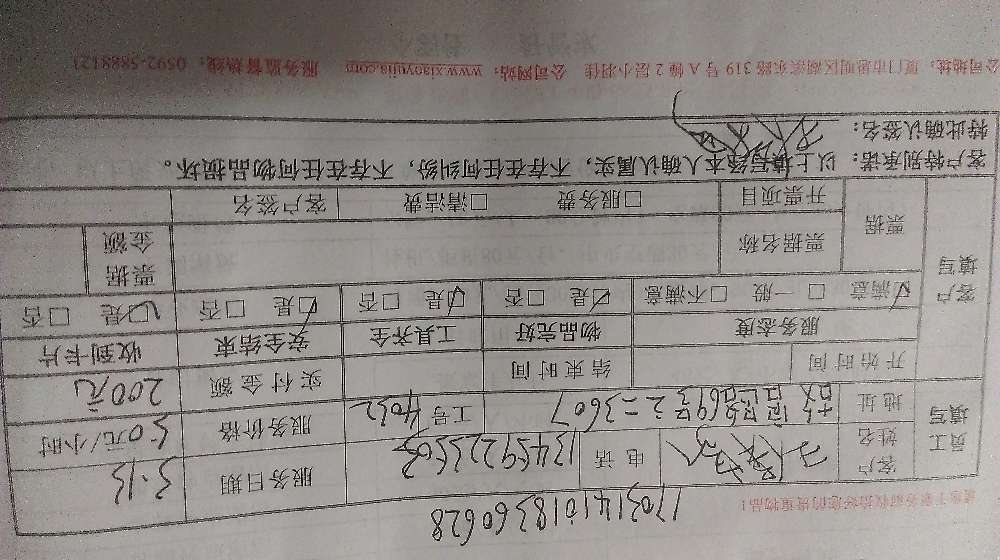 1703141018360628
请您于服务前收拾好您的贵重物品！
员工填写 客户姓名 电话 服务日期 3.15
地址 工号 4032 服务价格 50元/小时
开始时间 结束时间 实付金额 200元
客户填写 服务态度 物品完好 工具齐全 安全结束 收到卡片
☑满意 □一般 □不满意 ☑是 □否 ☑是 □否 ☑是 □否 ☑是 □否
票据 票据名称 票据金额
开票项目 □服务费 □清洁费 客户签名
客户特别承诺：以上填写经本人确认属实，不存在任何纠纷，不存在任何物品损坏。
特此确认签名：
公司地址：厦门市思明区湖滨东路 319 号 A 幢 2 层小羽佳 公司网站：www.xiaoyujia.com 服务监督热线：0592-5888121